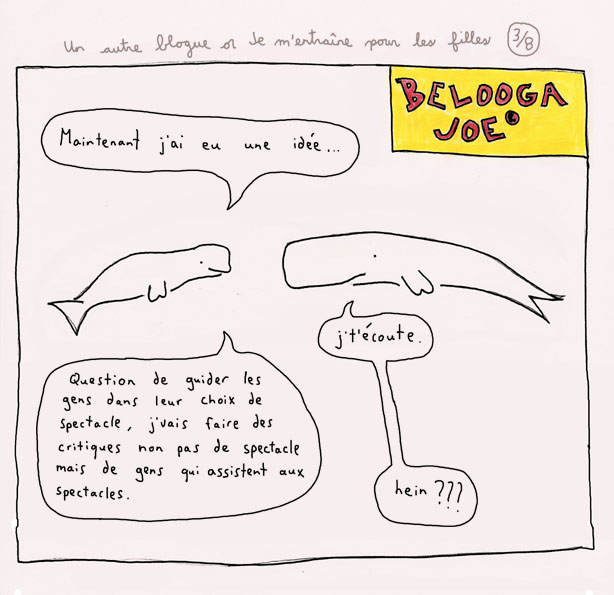 Un autre blogue où Je m'entraîne pour les filles 3/8
BELOOGA
JOE
Maintenant j'ai eu une idée...
j't'écoute.
Question de guider les
gens dans leur choix de
spectacle, j'vais faire des
critiques non pas de spectacle
mais de gens qui assistent aux
spectacles.
hein ???